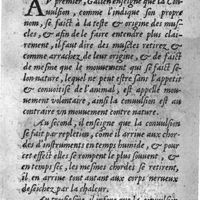 AV premier, Galien enseigne que la Con-
uulsion, comme l'indique son propre
nom, se faict à la teste & origine des mus-
cles, & afin de le faire entendre plus clai-
rement, il faut dire des muscles retirez &
comme arrachez de leur origine, & de faict
de mesme que le mouuement qui se faict se-
lon nature, lequel ne peut estre sans l'appetit
& conuoitise de l'animal, est appellé mou-
uement volontaire, ainsi la conuulsion est au
contraire vn mouuement contre nature.
Au second, il enseigne que la conuulsion
se fait par repletion, côme il arriue aux chor-
des d'instruments en temps humide, & pour
cet effect elles se rompent le plus souuent, &
en temps sec, les mesmes chordes se retirent,
il en arriue tout autant aux corps nerueux
deseichez par la chaleur.
Au troisiesme, il estime que la conuulsion